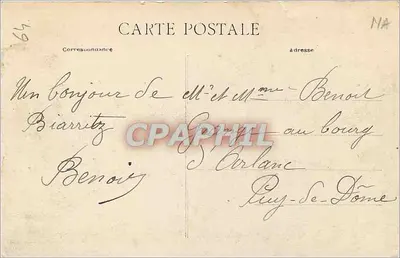 64
NA
CARTE POSTALE
Correspondance
Adresse
Un bonjour de
Biarritz
Benoit
Mr et Mme Benoit
au bourg
d'Arlanc
Puy-de-Dôme
CPAPHIL